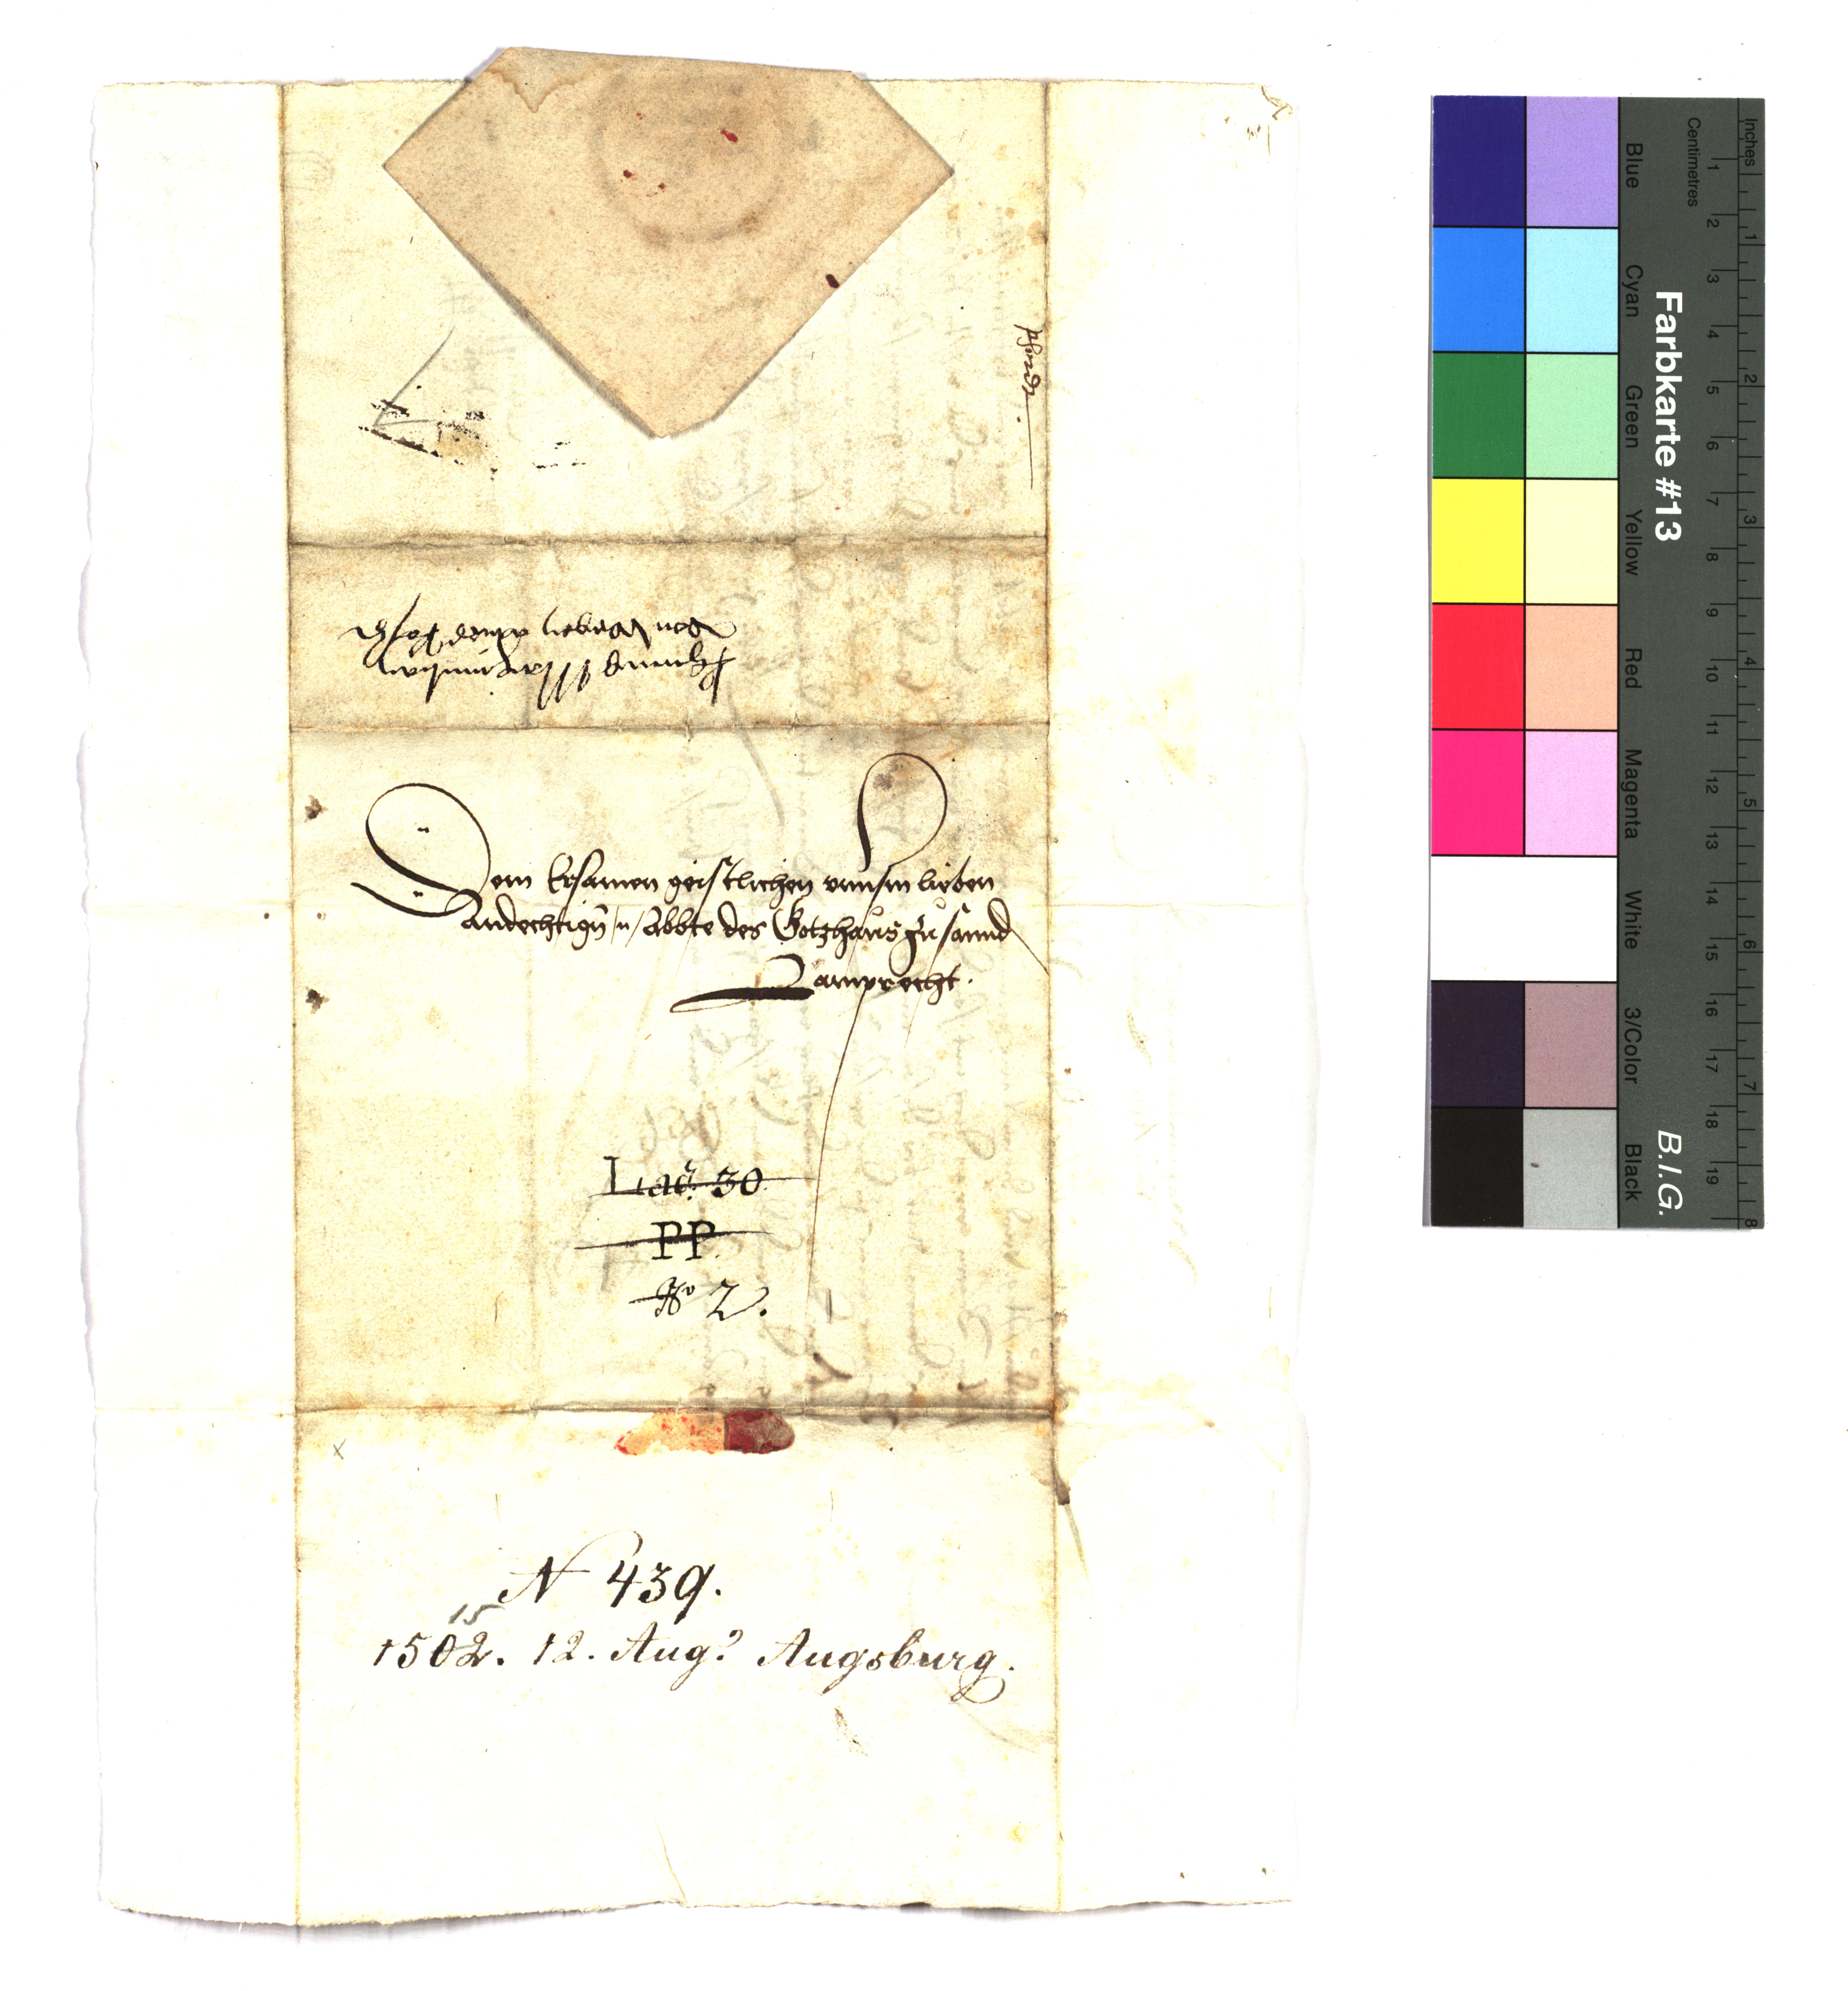 Dem Ersamen geistlichen vnnsm lieben
Andechtign̄ /n/ Abbte des Gotzhaus zu sannd
Lamprecht.
Lad: 30
PP.
No 2.
N 439.
15
1502. 12. Aug? Augsburg.
Inches
Centimetres
1 2 3 4 5 6 7 8 9 10 11 12 13 14 15 16 17 18 19
1 2 3 4 5 6 7 8
Farbkarte #13
B.I.G.
Blue
Cyan
Green
Yellow
Red
Magenta
White
3/Color
Black